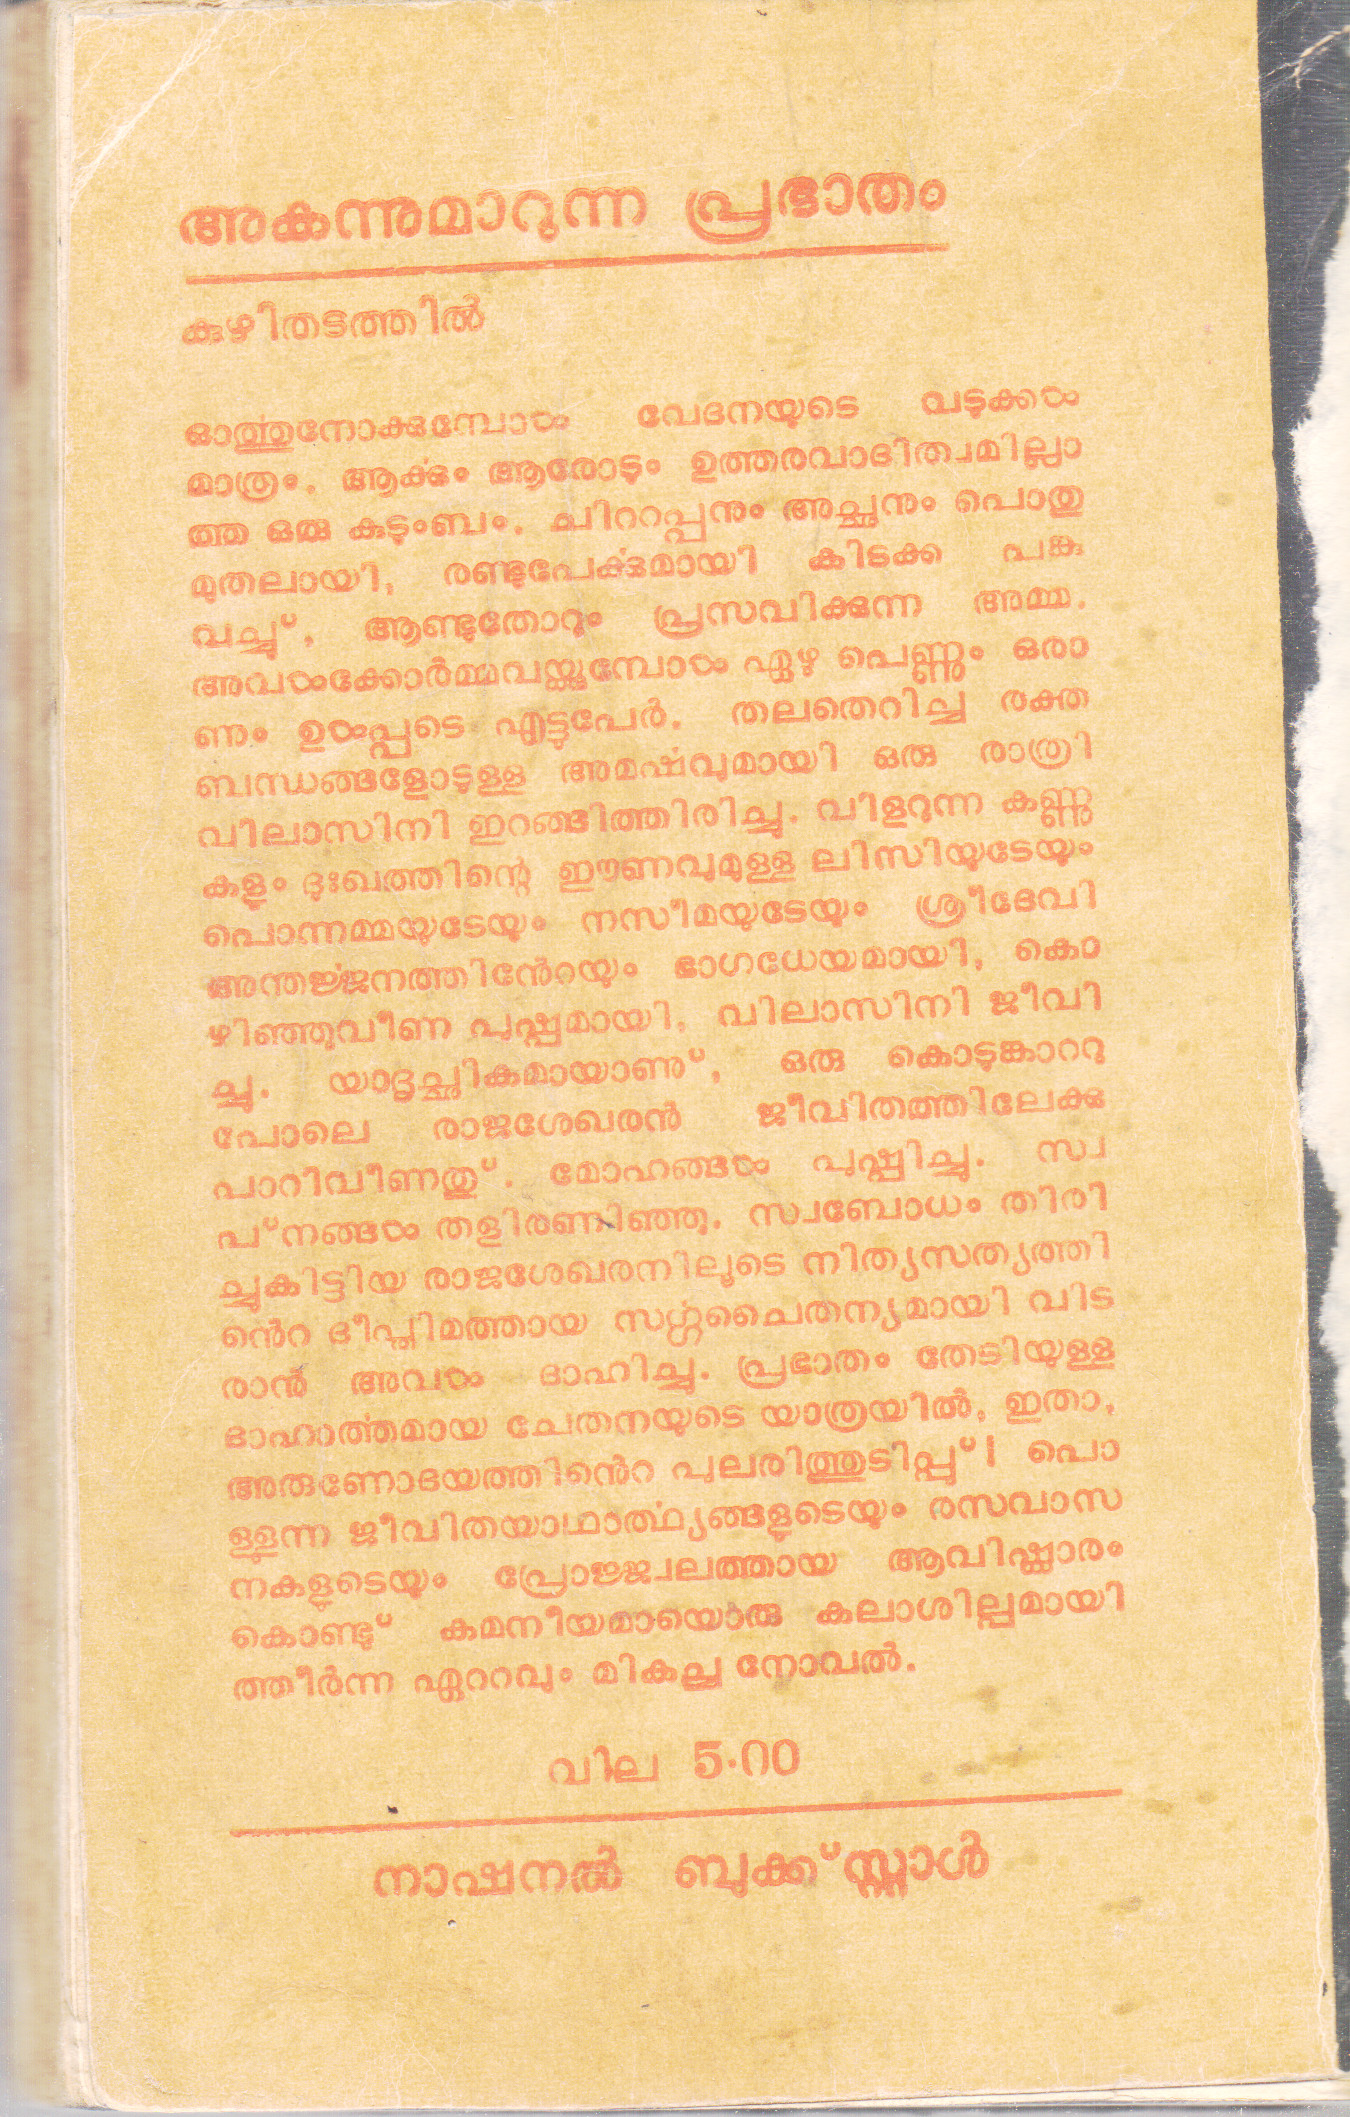 അകന്നുമാറുന്ന പ്രഭാതം
കുഴിതടത്തിൽ
ഓൎത്തുനോക്കുമ്പോൾ വേദനയുടെ വടുക്കൾ
മാത്രം. ആൎക്കും ആരോടും ഉത്തരവാദിത്വമില്ലാ
ത്ത ഒരു കുടുംബം. ചിററപ്പനും അച്ഛനും പൊതു
മുതലായി, രണ്ടുപേൎക്കുമായി കിടക്ക പങ്കു
വച്ചു്, ആണ്ടുതോറും പ്രസവിക്കുന്ന അമ്മ.
അവൾക്കോർമ്മവയ്ക്കുമ്പോൾ ഏഴു പെണ്ണും ഒരാ
ണും ഉൾപ്പടെ എട്ടുപേർ. തലതെറിച്ച രക്ത
ബന്ധങ്ങളോടുള്ള അമൎഷവുമായി ഒരു രാത്രി
വിലാസിനി ഇറങ്ങിത്തിരിച്ചു. വിളറുന്ന കണ്ണു
കളും ദുഃഖത്തിന്റെ ഈണവുമുള്ള ലിസിയുടേയും
പൊന്നമ്മയുടേയും നസീമയുടേയും ശ്രീദേവി
അന്തൎജ്ജനത്തിൻേറയും ഭാഗധേയമായി, കൊ
ഴിഞ്ഞുവീണ പുഷ്പമായി, വിലാസിനി ജീവി
ച്ചു. യാദൃച്ഛികമായാണു്, ഒരു കൊടുങ്കാററു
പോലെ രാജശേഖരൻ ജീവിതത്തിലേക്കു
പാറിവീണതു്. മോഹങ്ങൾ പുഷ്പിച്ചു. സ്വ
പ്നങ്ങൾ തളിരണിഞ്ഞു. സ്വബോധം തിരി
ച്ചുകിട്ടിയ രാജശേഖരനിലൂടെ നിത്യസത്യത്തി
ൻെറ ദീപ്തിമത്തായ സൎഗ്ഗചൈതന്യമായി വിട
രാൻ അവൾ ദാഹിച്ചു. പ്രഭാതം തേടിയുള്ള
ദാഹാൎത്തമായ ചേതനയുടെ യാത്രയിൽ, ഇതാ,
അരുണോദയത്തിൻെറ പുലരിത്തുടിപ്പു്! പൊ
ള്ളുന്ന ജീവിതയാഥാൎത്ഥ്യങ്ങളുടെയും രസവാസ
നകളുടെയും പ്രോജ്ജ്വലത്തായ ആവിഷ്ക്കാരം
കൊണ്ടു് കമനീയമായൊരു കലാശില്പമായി
ത്തീർന്ന ഏററവും മികച്ച നോവൽ.
വില 5·00
നാഷനൽ ബുക്ക്സ്റ്റാൾ